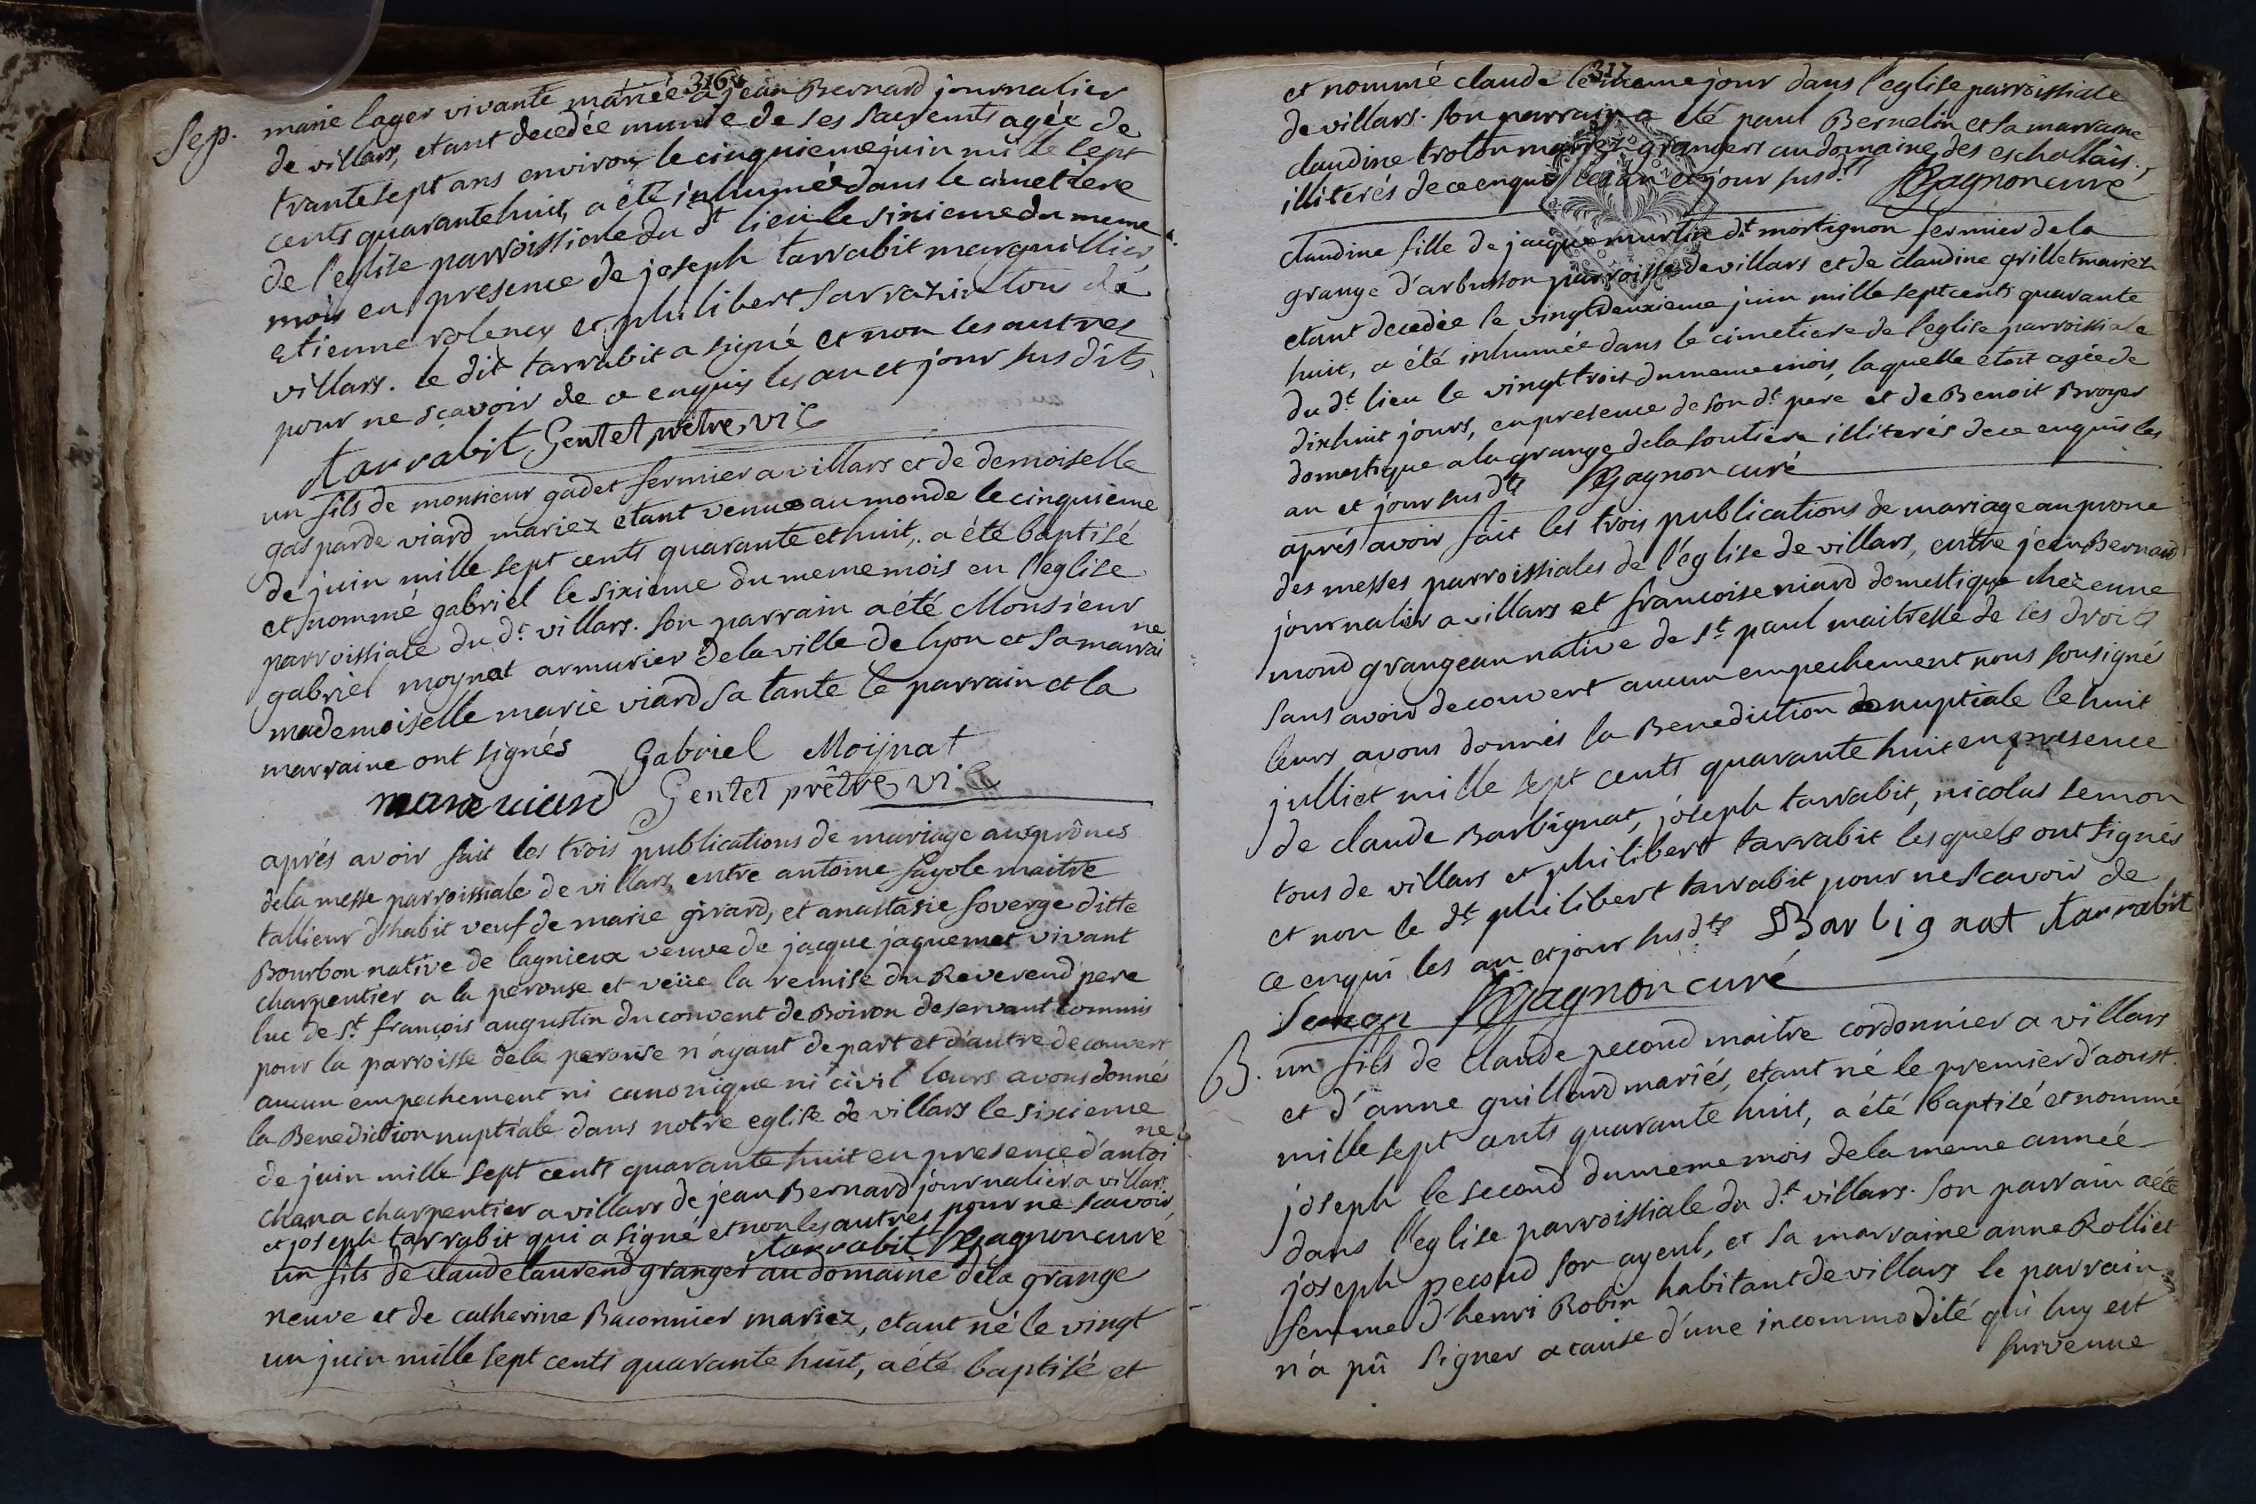 316
Sep. marie lager vivante mariée a jean Bernard journalier
de villars, etant decedée munie de ses sacrements agée de
trante sept ans environ, le cinquieme juin mille sept
cents quarante huit, a été inhumée dans le cimetiere
de l'eglise parroissiale du dt lieu le sixieme du meme
mois en presence de joseph tarrabit marguillier
etienne rolency et philibert sarrazin tous de
villars. le dit tarrabit a signé et non les autres
pour ne sçavoir de ce enquis les an et jour susdits.
tarrabit Gentet prêtre vic
un fils de monsieur gadet fermier a villars et de demoiselle
gasparde viard mariez etant venu au monde le cinquieme
de juin mille sept cents quarante et huit, a été baptisé
et nommé gabriel le sixieme du meme mois en l'eglise
parroissiale du dt villars. son parrain a été Monsieur
gabriel moynat armurier de la ville de lyon et sa marraine
mademoiselle marie viard sa tante le parrain et la
marraine ont signés Gabriel Moijnat
marie viard Gentet prêtre vic
aprés avoir fait les trois publications de mariage aux prônes
de la messe parroissiale de villars, entre antoine fayole maitre
tallieur d'habit veuf de marie girard, et anastasie soverge ditte
Bourbon native de lagnieux veuve de jacque jaquemet vivant
charpentier a la perouse et veüe la remise du Reverend pere
luc de St françois augustin du convent de Boiron deservant commis
pour la parroisse de la perouse n'ayant de part et d'autre decouvert
aucun empechement ni canonique ni civil leurs avons donnés
la Benediction nuptiale dans notre eglise de villars le sixieme
de juin mille sept cents quarante huit en presence d'antoine
chana charpentier a villars de jean Bernard journalier a villars
et joseph tarrabit qui a signé et non les autres pour ne scavoir
tarrabit Gagnon curé
un fils de claude laurend granger au domaine de la grange
neuve et de catherine Baconnier mariez, etant né le vingt
un juin mille sept cents quarante huit, a été baptisé et
317
et nommé claude le meme jour dans l'eglise parroissiale
de villars. son parrain a été paul Bernelin et sa marraine
claudine troton mariez grangers au domaine des eschallais.
illiterés de ce enquis les an et jour susdts Gagnon curé
claudine fille de jacque murtin dt mortignon fermier de la
grange d'arbusson parroisse de villars et de claudine grillet mariez
etant decedée le vingt deuxieme juin mille sept cents quarante
huit, a été inhumée dans le cimetiere de l'eglise parroissiale
du dt lieu le vingt trois du meme mois, laquelle étoit agée de
dix huit jours, en presence de son dt pere et de Benoit Broyer
domestique a la grange de la soutiere illiterés de ce enquis les
an et jour susdts Gagnon curé
aprés avoir fait les trois publications de mariage au prone
des messes parroissiales de l'église de villars, entre jean Bernard
journalier a villars et francoise niard domestique chez enne
mond grangean native de st paul maitresse de ses droits
sans avoir decouvert aucun empechement nous sousigné
leurs avons donnés la Benediction nuptiale le huit
julliet mille sept cents quarante huit en presence
de claude Barbignat, joseph tarrabit, nicolas semon
tous de villars et philibert tarrabit lesquels ont signés
et non le dt philibert tarrabit pour ne scavoir de
ce enqui les an et jour susdts Barbignat tarrabit
Semon Gagnon curé
B. un fils de claude pecoud maitre cordonnier a villars
et d'anne guillard mariés, etant né le premier d'aoust
mille sept cents quarante huit, a été baptisé et nommé
joseph le second du meme mois de la meme année
dans l'eglise parroissiale du dt villars. son parrain a été
joseph pecoud son ayeul, et sa marraine anne Rolliet
femme d'henri Robin habitant de villars le parrain
n'a pû signer a cause d'une incommodité qui luy est
survenue